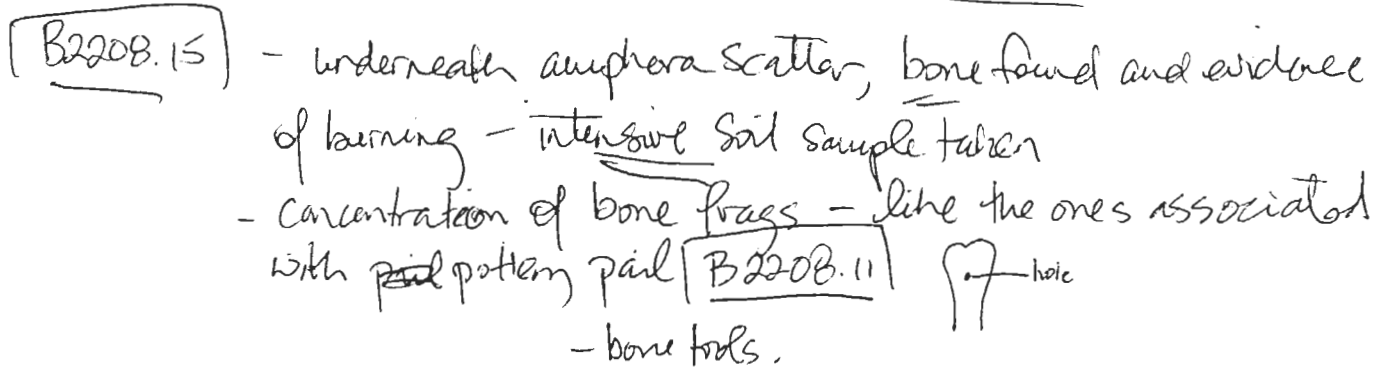 B2208.15 - underneath amphora scatter, bone found and evidence
of burning - intensive soil sample taken
- concentration of bone frags - like the ones associated
with pail pottery pail B2208.11 hole
- bone tools.